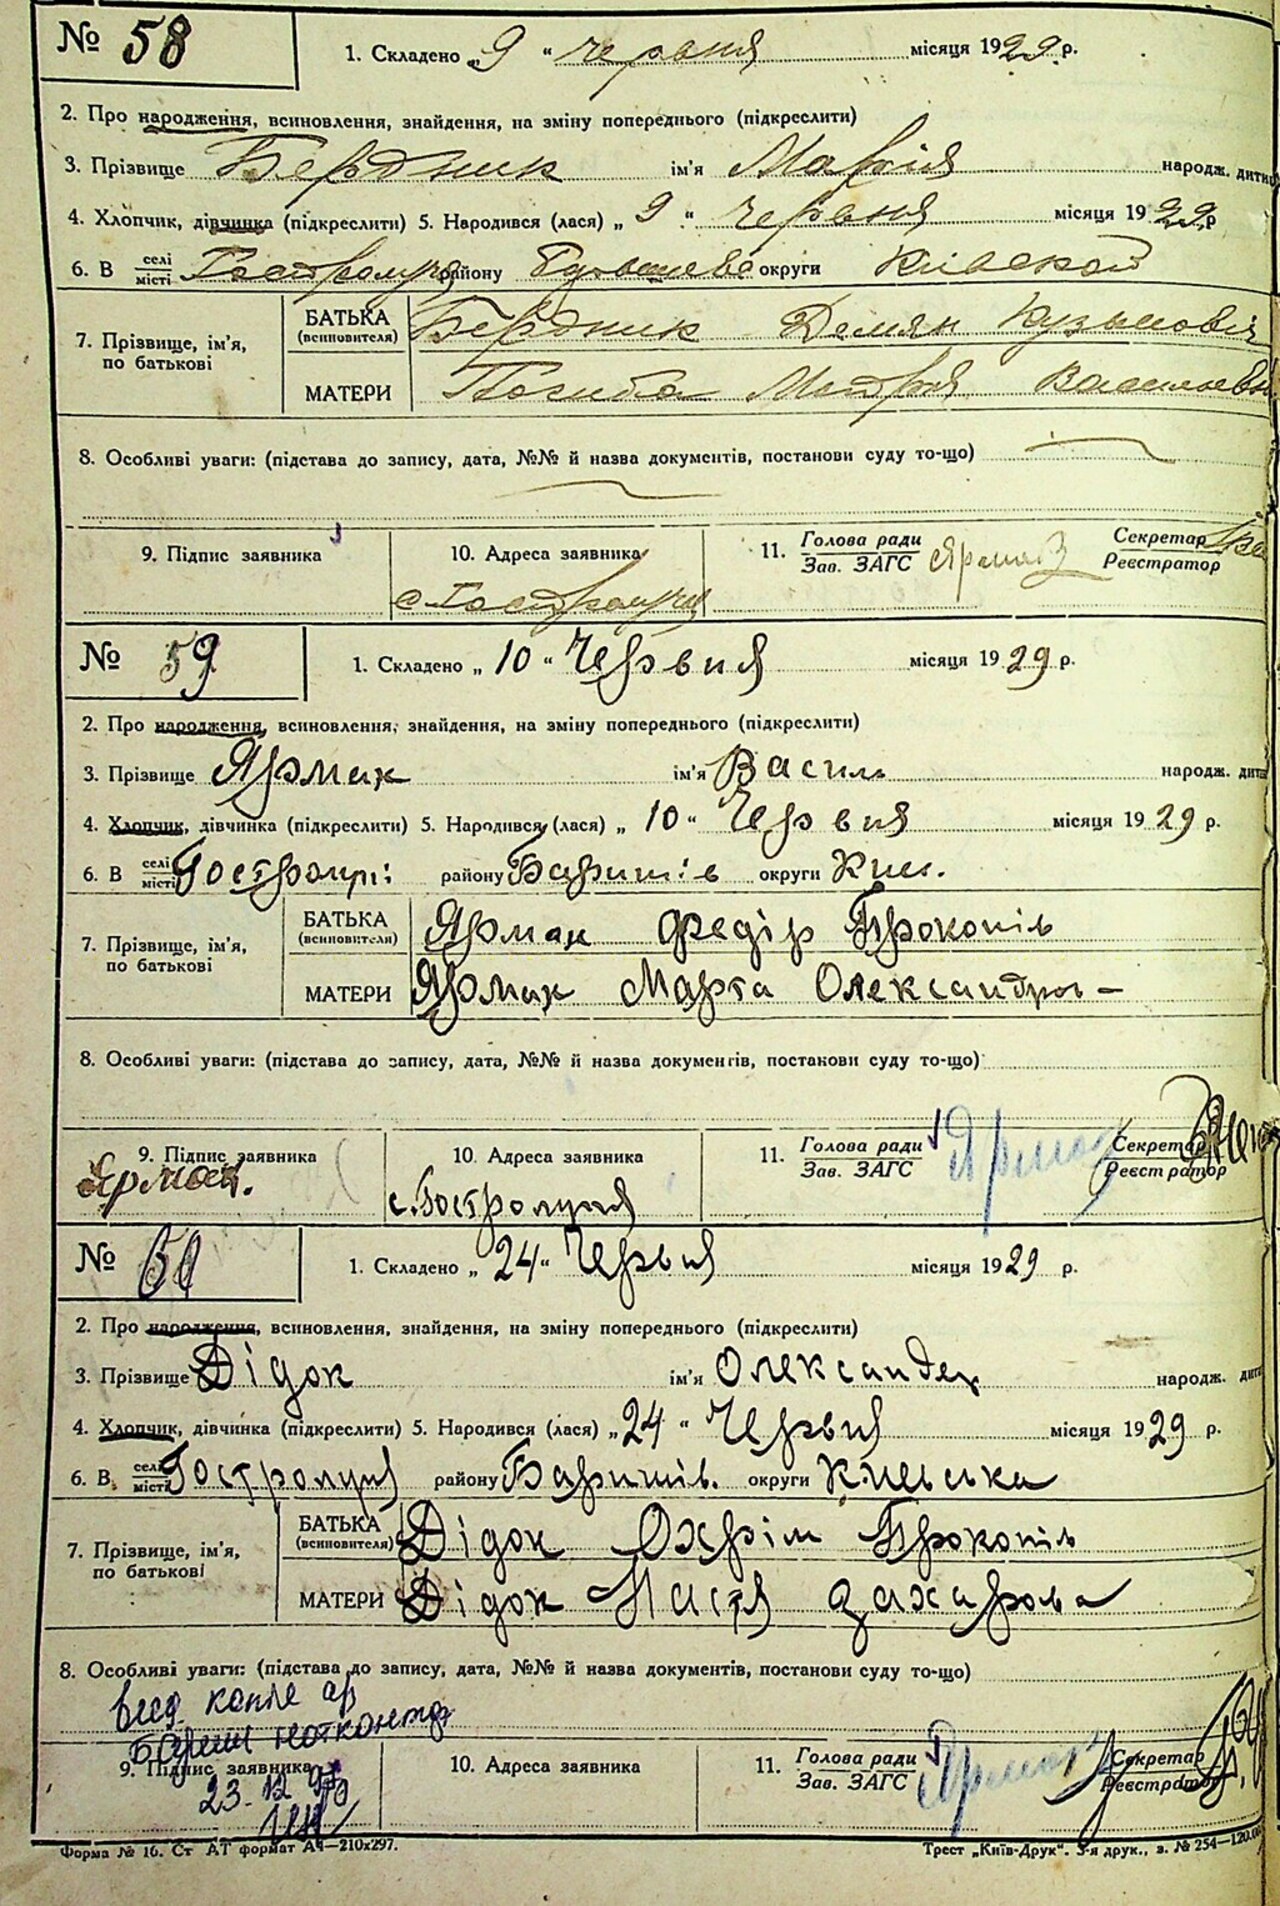 № 58
1. Складено „9“ червня місяця 1929 р.
2. Про народження, всиновлення, знайдення, на зміну попереднього (підкреслити)
3. Прізвище Бердник ім'я Марія народж. дитин
4. Хлопчик, дівчинка (підкреслити) 5. Народився (лася) „9“ червня місяця 1929 р
6. В селі/місті Гостролуча району округи Київской
7. Прізвище, ім'я, по батькові
БАТЬКА (всиновителя) Бердник Демян Кузьмовіч
МАТЕРИ Мотря Васильевн
8. Особливі уваги: (підстава до запису, дата, №№ й назва документів, постанови суду то-що)
9. Підпис заявника 10. Адреса заявника 11. Голова ради Секретар
Зав. ЗАГС Реєстратор
с Гостролуча
№ 59
1. Складено „10“ Червня місяця 1929 р.
2. Про народження, всиновлення, знайдення, на зміну попереднього (підкреслити)
3. Прізвище Ярмак ім'я Василь народж. дити
4. Хлопчик, дівчинка (підкреслити) 5. Народився (лася) „10“ Червня місяця 1929 р.
6. В селі/місті Гостролучі району Баришів округи Киев.
7. Прізвище, ім'я, по батькові
БАТЬКА (всиновителя) Ярмак Федір Прокопів
МАТЕРИ Ярмак Марта Олександров–
8. Особливі уваги: (підстава до запису, дата, №№ й назва документів, постанови суду то-що)
9. Підпис заявника 10. Адреса заявника 11. Голова ради Секретар
Зав. ЗАГС Реєстратор
Ярмак. с. Гостролуча Ярмак
№ 60
1. Складено „24“ Червня місяця 1929 р.
2. Про народження, всиновлення, знайдення, на зміну попереднього (підкреслити)
3. Прізвище Дідок ім'я Олександер народж. дити
4. Хлопчик, дівчинка (підкреслити) 5. Народився (лася) „24“ Червня місяця 1929 р.
6. В селі/місті Гостролуча району Баришів. округи Киевська
7. Прізвище, ім'я, по батькові
БАТЬКА (всиновителя) Дідок Охрім Прокопів
МАТЕРИ Дідок Настя Захарова
8. Особливі уваги: (підстава до запису, дата, №№ й назва документів, постанови суду то-що)
9. Підпис заявника 10. Адреса заявника 11. Голова ради Секретар
Зав. ЗАГС Реєстратор
23. 12
Форма № 16. Ст АТ формат А4—210х297.
Трест „Київ-Друк“. 3-я друк., з. № 254—120.00